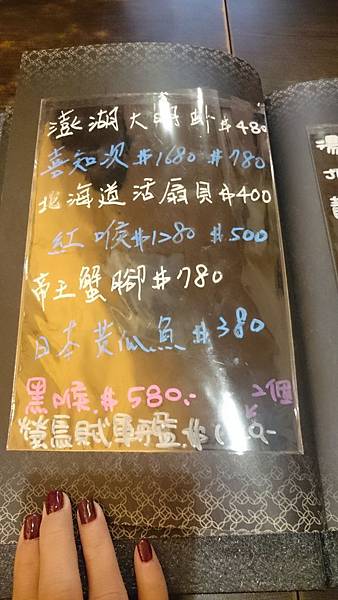 澎湖大明蝦 #480
喜知次 #1680 #780
北海道活扇貝 #400
紅喉 #1280 #500
帝王蟹腳 #780
日本黃瓜魚 #380
黑喉 #580.- 2個
螢烏賊軍艦